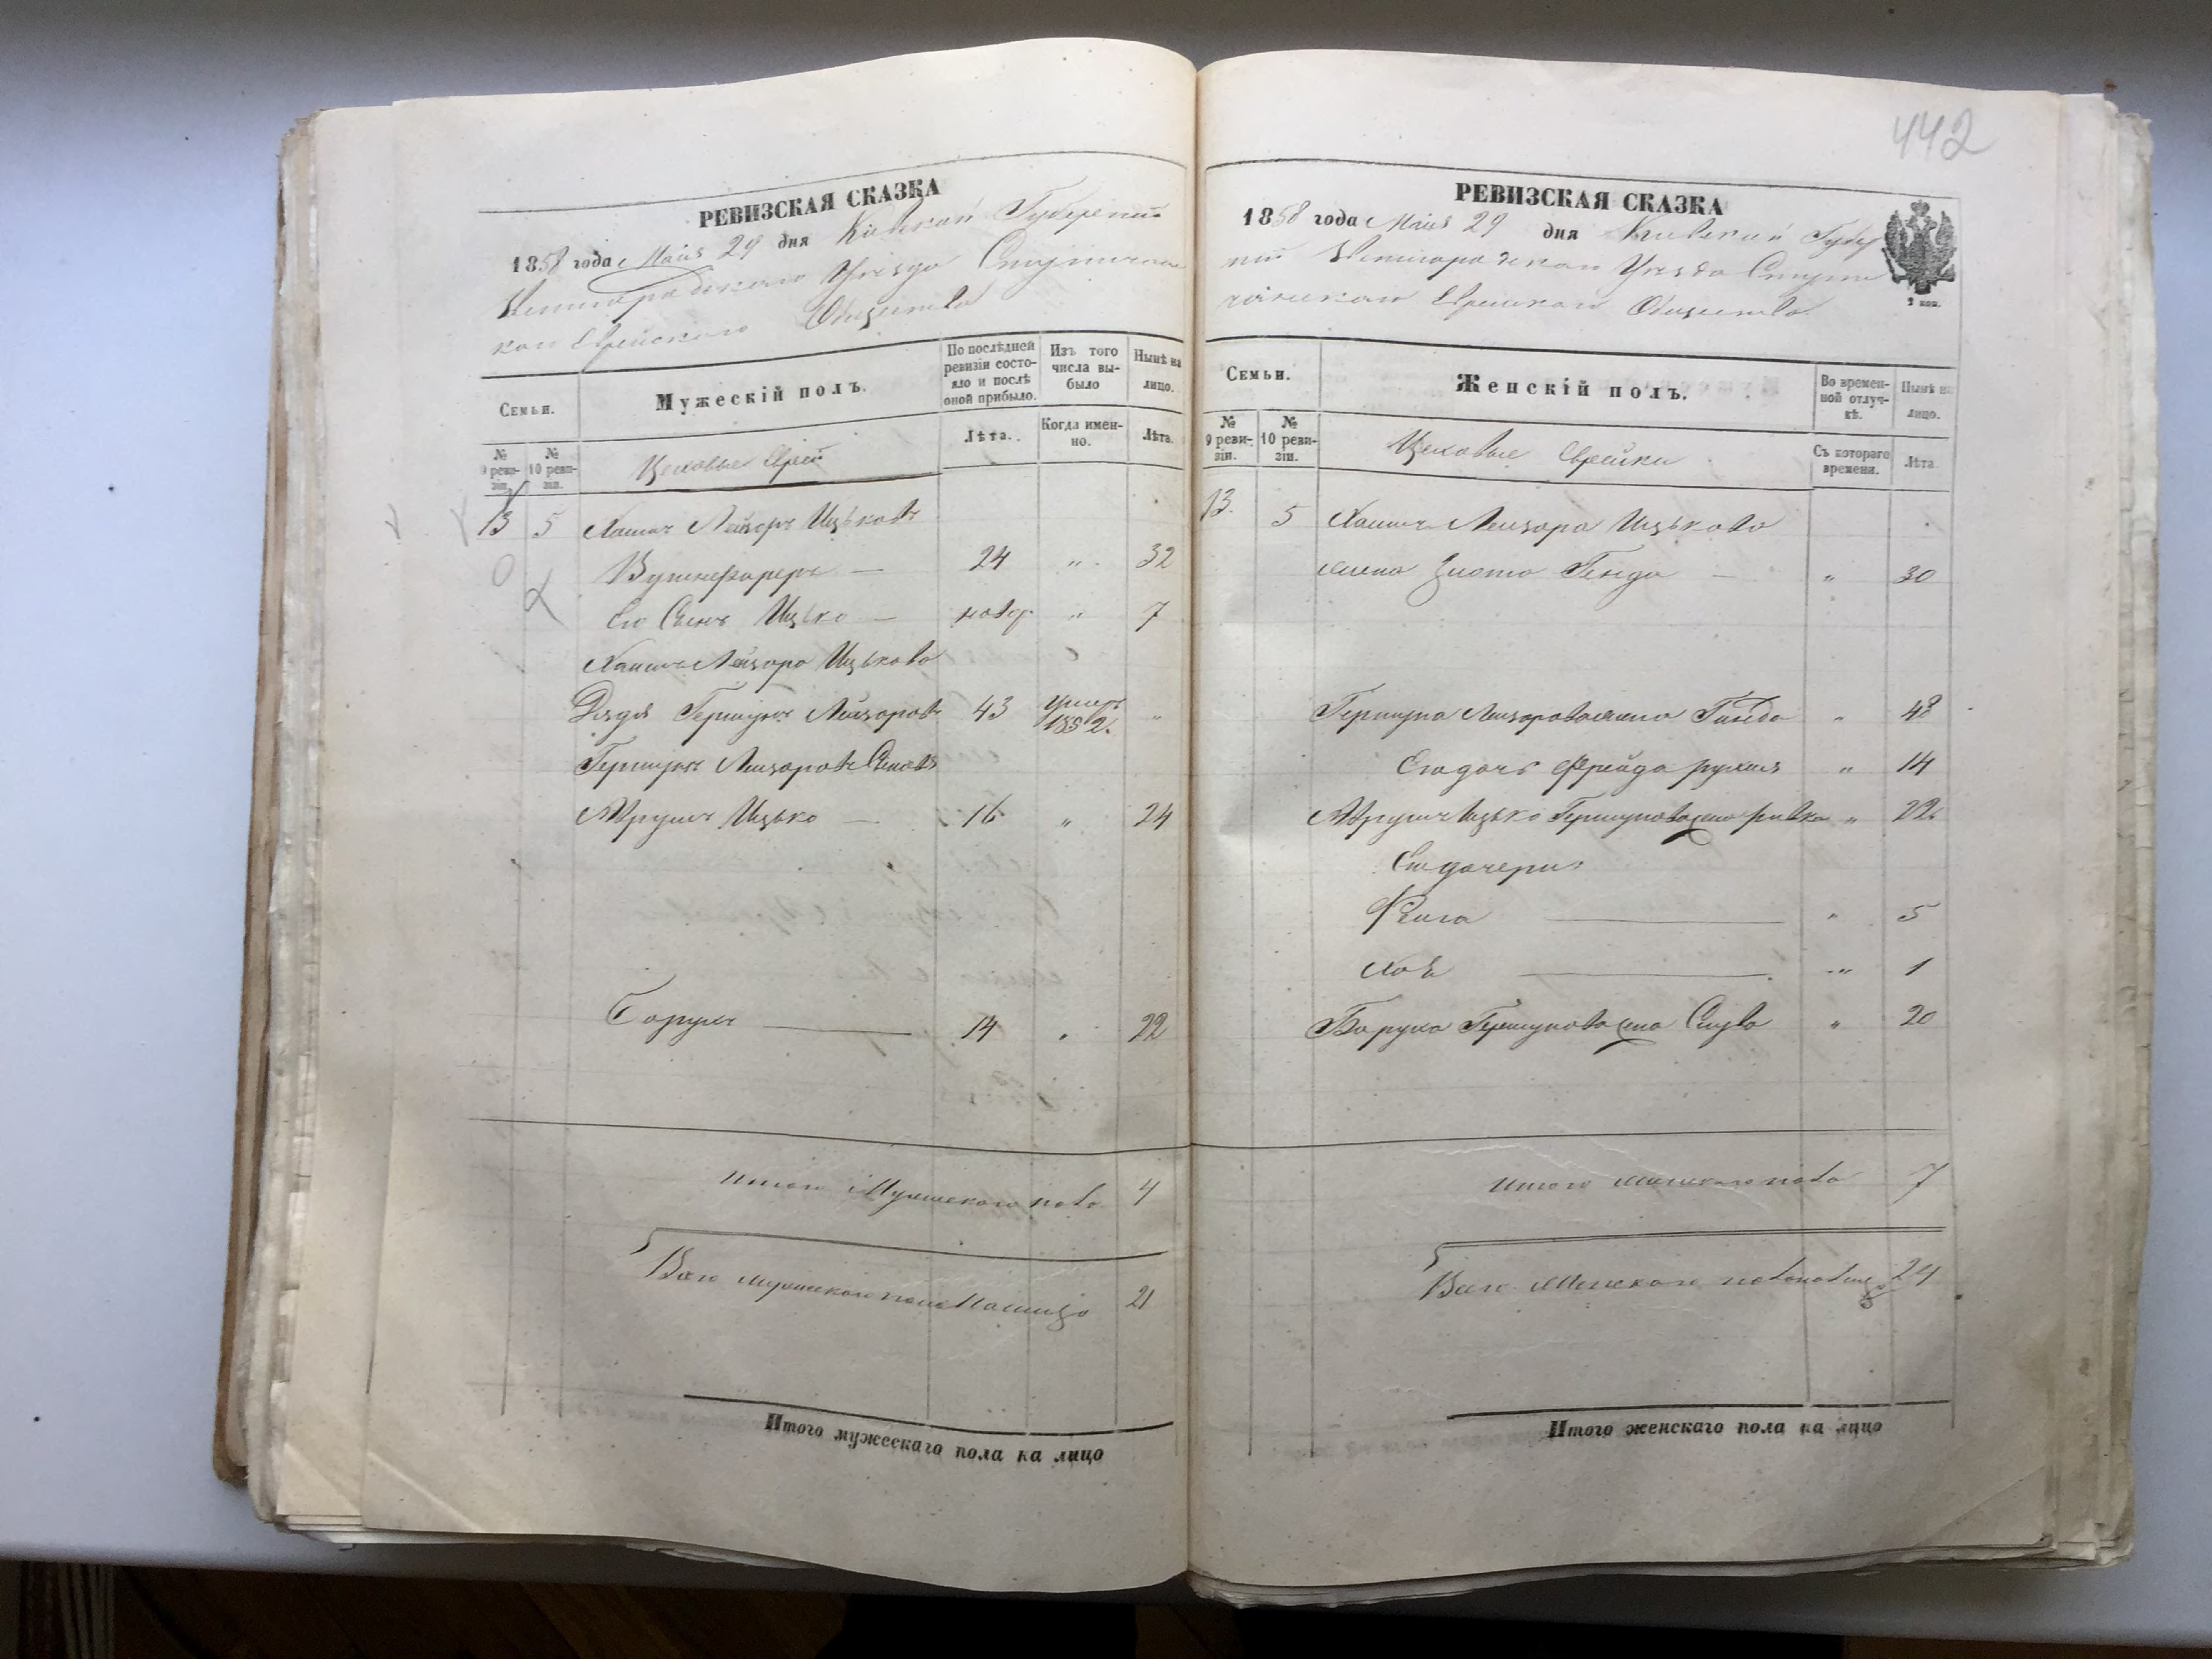 442
РЕВИЗСКАЯ СКАЗКА
1858 года Маія 29 дня Кіевской Губерніи
Звенигородского Уезда
кого Еврейского Общества
Семьи.
Мужескій полъ.
По послѣдней ревизіи состояло и послѣ оной прибыло.
Изъ того числа выбыло
Нынѣ на лицо.
№ 9 ревизіи.
№ 10 ревизіи.
Цеховые Евреи
Лѣта.
Когда именно.
Лѣта.
13 5 Хаимъ Лейзоръ Ицьковъ
— 24 " 32
Его Сынъ Ицько — новор. " 7
Хаима Лейзора Ицькова
Дядя Гершунъ Лейзоровъ 43 умеръ 1852. "
Гершуна Лейзорова Сыновья
Аврумъ Ицько — 16 " 24
Борухъ — 14 " 22
Итого Мужескаго пола 4
Всего мужескаго пола Налицо 21
Итого мужескаго пола на лицо
РЕВИЗСКАЯ СКАЗКА
1858 года Маія 29 дня Кіевской Губер
ніи Звенигородского Уезда
Еврейского Общества
2 коп.
Семьи.
Женскій полъ.
Во временной отлучкѣ.
Нынѣ на лицо.
№ 9 ревизіи.
№ 10 ревизіи.
Цеховые Еврейки
Съ котораго времени.
Лѣта
13. 5 Хаима Лейзора Ицькова
жена Злота Генда — " 30
Гершуна Лейзорова жена " 48
Его дочь Фрейда рухля " 14
Аврума Ицько Гершунова жена ривка " 22
Его дочери:
Фейга — " 5
Хая — " 1
Боруха Гершунова жена Слува " 20
Итого женскаго пола 7
Всего Женскаго пола налицо 24
Итого женскаго пола на лицо